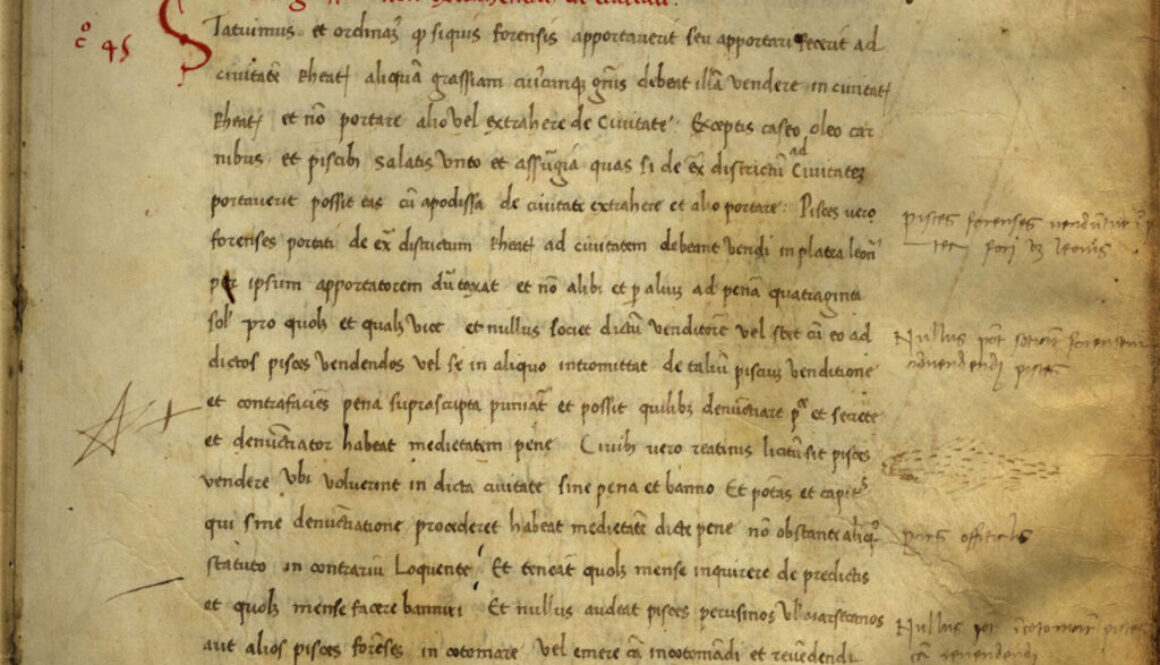 non extrahendis de civitate.
c° 45
Statuimus et ordinam9 q siquis forensis apportaverit seu apportari fecerit ad
civitatē Rheat aliquā grassiam cuiᵒcunq gn̄is debeat illā vendere in civitat
Rheat et nō portare alio vel extrahere de Civitate Exceptis caseo oleo car
nibus et piscib salatis Unto et assūgia quas si de ex̄ districtū ad Civitatez
portaverit possit eas cū apodissa de civitate extrahere et alio portare: Pisces vero
forenses portati de ex̄ districtum Rheat ad civitatem debeant vendi in platea leon
per ipsum apportatorem dūtaxat et nō alibi et p aliuz ad penā quatraginta
sol pro quolz et qualz vice et nullus societ dictū venditorē vel stet cū eo ad
dictos pisces vendendos vel se in aliquo intromittat de taliū pisciuz venditione
et contrafaciēs pena suprascripta puniat et possit quilibz denūctiare et secrete
et denūctiator habeat medietatem pene Civib vero reatinis licitū sit pisces
vendere Ubi voluerint in dicta civitate sine pena et banno Et potas et capit
qui sine denūctiatione procederet habeat medietatē dicte pene nō obstante aliq
statuto in contrariū Loquente Et teneat quolz mense inquirere de predictis
et quolz mense facere banniri Et nullus audeat pisces perusinos Vl
aut alios pisces forēses in cotomare Vel emere cā incotomādi et revēdendi
pisces forenses vendūtur ī p
fori vz leonis
Nullus pōt forensem
pisces
pars officialis
Nullus pōt īcotomare pisces
cā revendendi